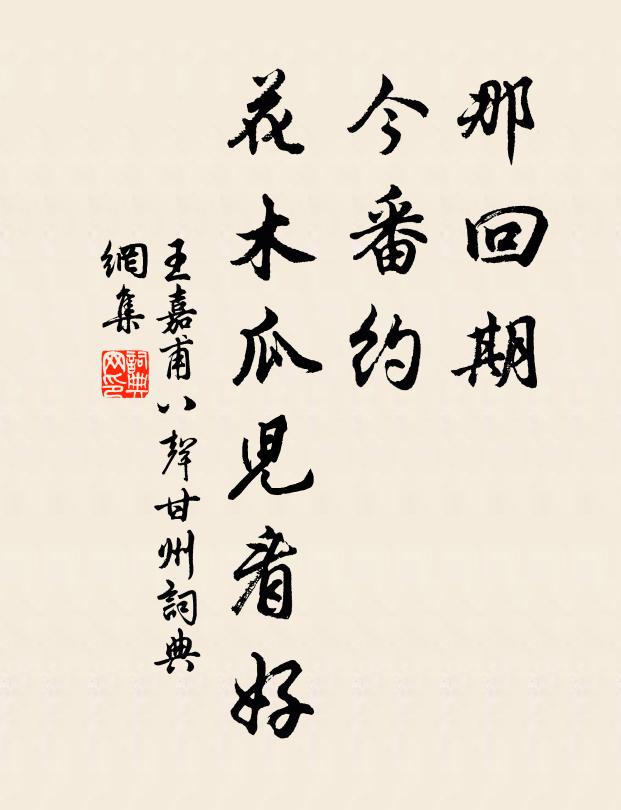 那回期
今番約
花木瓜兒看好
王嘉甫八聲甘州詞典
網集
詞典
网印